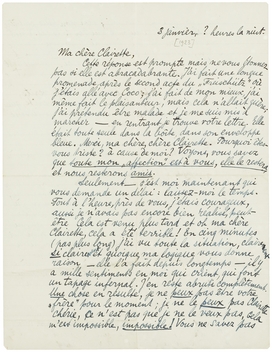 3 janvier, 7 heures la nuit.
Ma chère Clairette,
Cette réponse est prompte mais ne vous étonnez
pas si elle est abracadabrante. J'ai fait une longue
promenade après le second acte du "Freischütz" où
j'étais allé avec Coco. J'ai fait de mon mieux, j'ai
même fait le plaisanteur, mais cela n'allait
J'ai prétendu être malade et je me suis mis à
marcher — en rentrant je trouve votre lettre. Elle
était toute seule dans la boîte, dans son enveloppe
bleue. Merci, ma chère, chère Clairette. Pourquoi êtes
vous triste? à cause de moi? Voyons, vous savez
que toute mon affection est à vous, elle le reste
et nous resterons amis.
Seulement — c'est moi maintenant qui
vous demande un délai: laissez-moi le temps.
Tout à l'heure, près de vous, j'étais courageux,
aussi je n'avais pas encore bien réalisé, peut-être
cela est venu plus tard et oh ma chère
Clairette, cela a été terrible! En cinq minutes
(pas plus long) j'ai vu toute la situation, claire
si claire et quoique ma logique vous donne
raison — elle l'a fait depuis longtemps — il y
a mille sentiments en moi qui crient, qui font
un tapage infernal. J'en reste abruti complètement.
Une chose en résulte, je ne peux pas être votre
"frère" pour le moment, je ne le peux pas Clairette
chérie, ce n'est pas que je ne veux pas, cela
m'est impossible, impossible! Vous ne savez pas